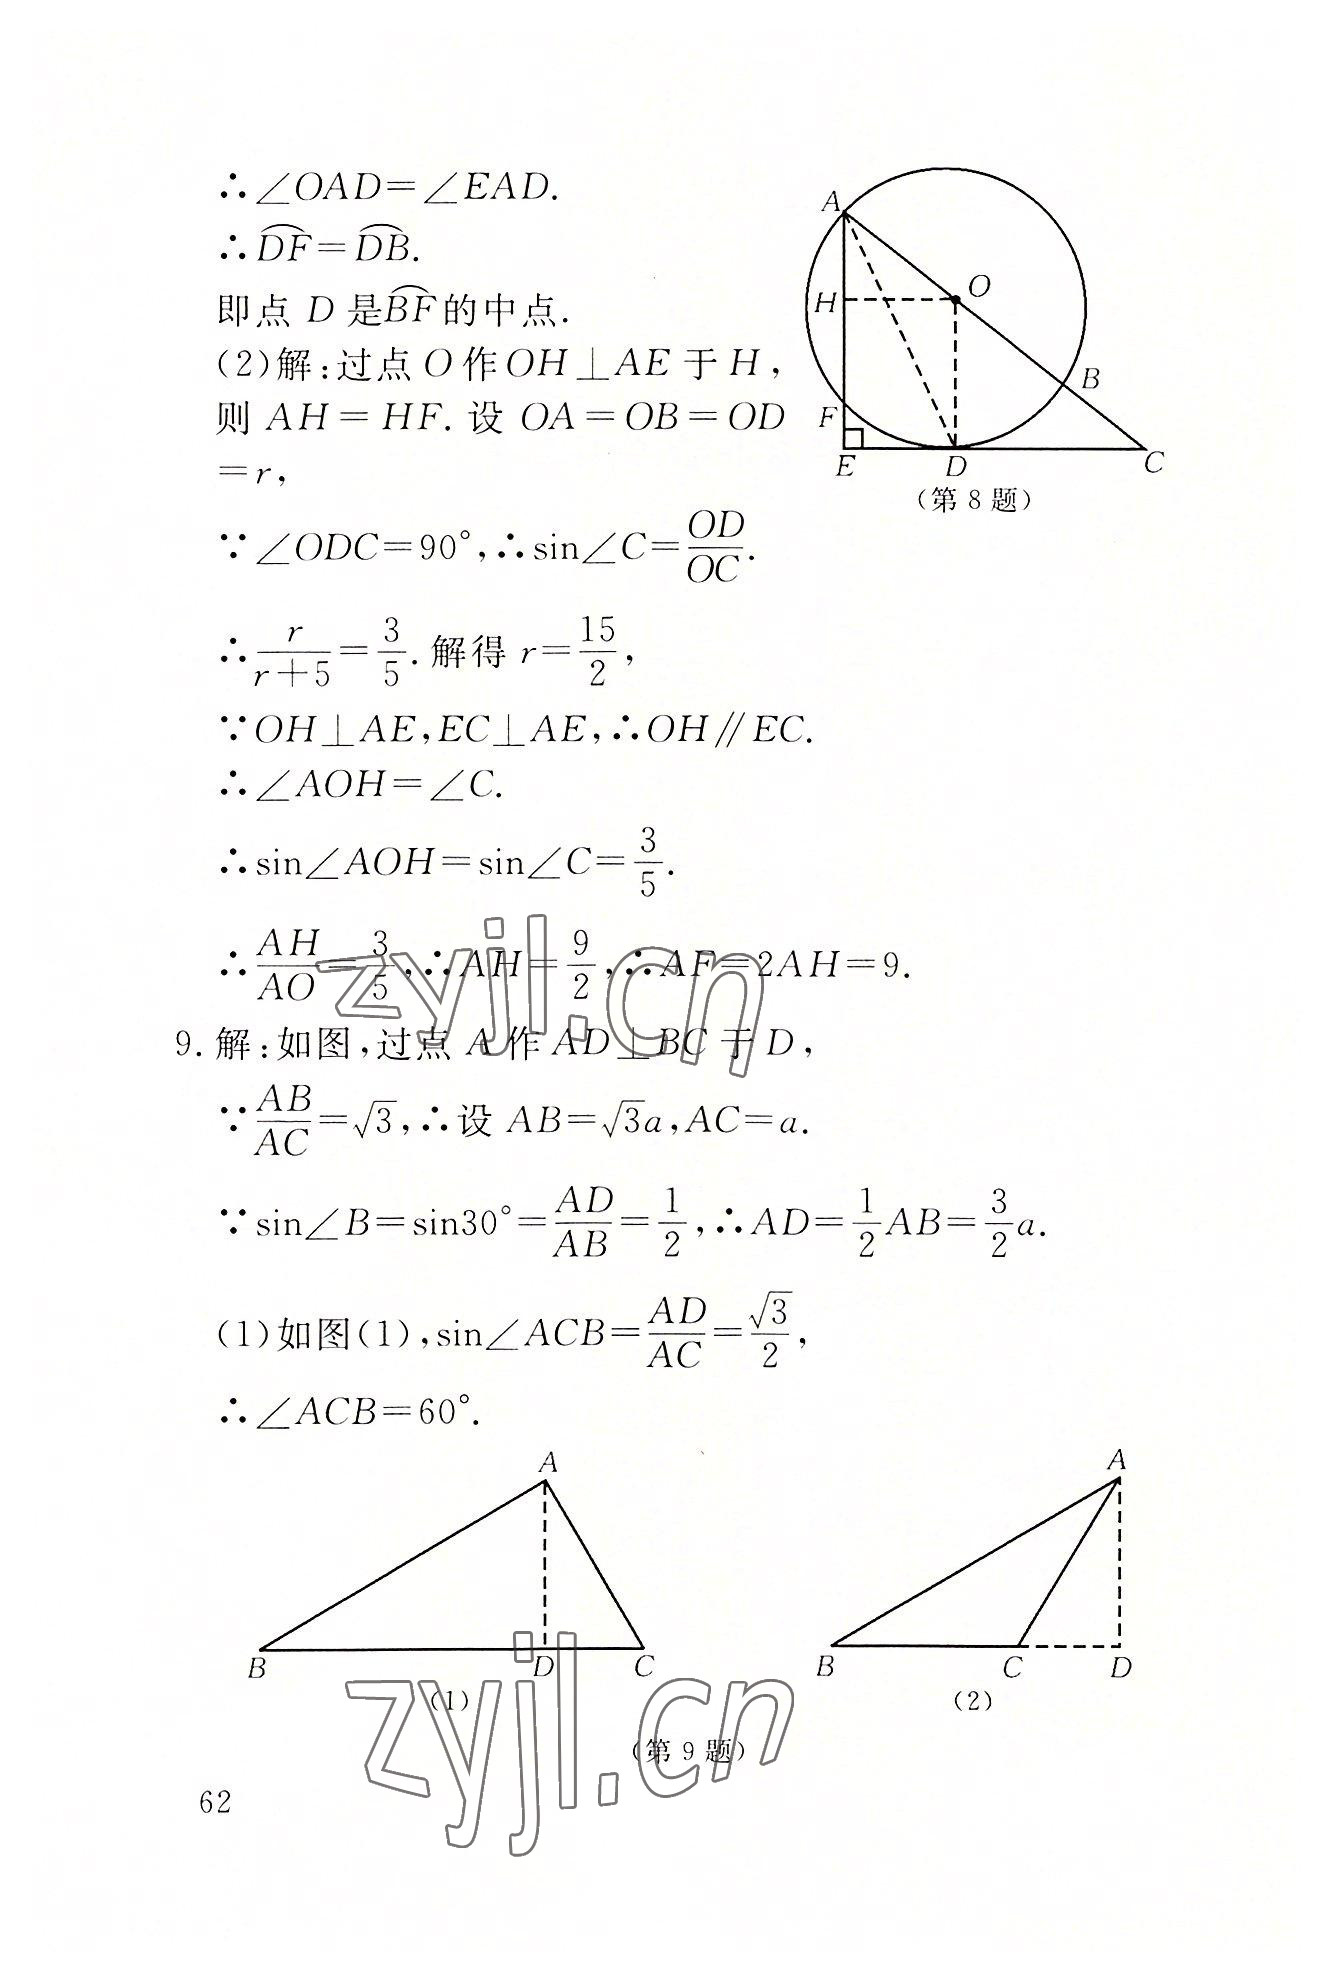 ∴∠OAD=∠EAD.
∴\overset{\frown}{DF}=\overset{\frown}{DB}.
即点 D 是\overset{\frown}{BF}的中点.
(2)解:过点 O 作 OH⊥AE 于 H,
则 AH=HF. 设 OA=OB=OD
=r,
∵∠ODC=90°,∴sin∠C=\frac{OD}{OC}.
∴\frac{r}{r+5}=\frac{3}{5}.解得 r=\frac{15}{2},
∵OH⊥AE,EC⊥AE,∴OH∥EC.
∴∠AOH=∠C.
∴sin∠AOH=sin∠C=\frac{3}{5}.
∴\frac{AH}{AO}=\frac{3}{5},∴AH=\frac{9}{2},∴AF=2AH=9.
A
H
O
B
F
E
D
C
(第 8 题)
9. 解:如图,过点 A 作 AD⊥BC 于 D,
∵\frac{AB}{AC}=\sqrt{3},∴设 AB=\sqrt{3}a,AC=a.
∵sin∠B=sin30°=\frac{AD}{AB}=\frac{1}{2},∴AD=\frac{1}{2}AB=\frac{3}{2}a.
(1)如图(1),sin∠ACB=\frac{AD}{AC}=\frac{\sqrt{3}}{2},
∴∠ACB=60°.
A
B
D
C
(1)
A
B
C
D
(2)
(第 9 题)
62
zyjl.cn
zyjl.cn